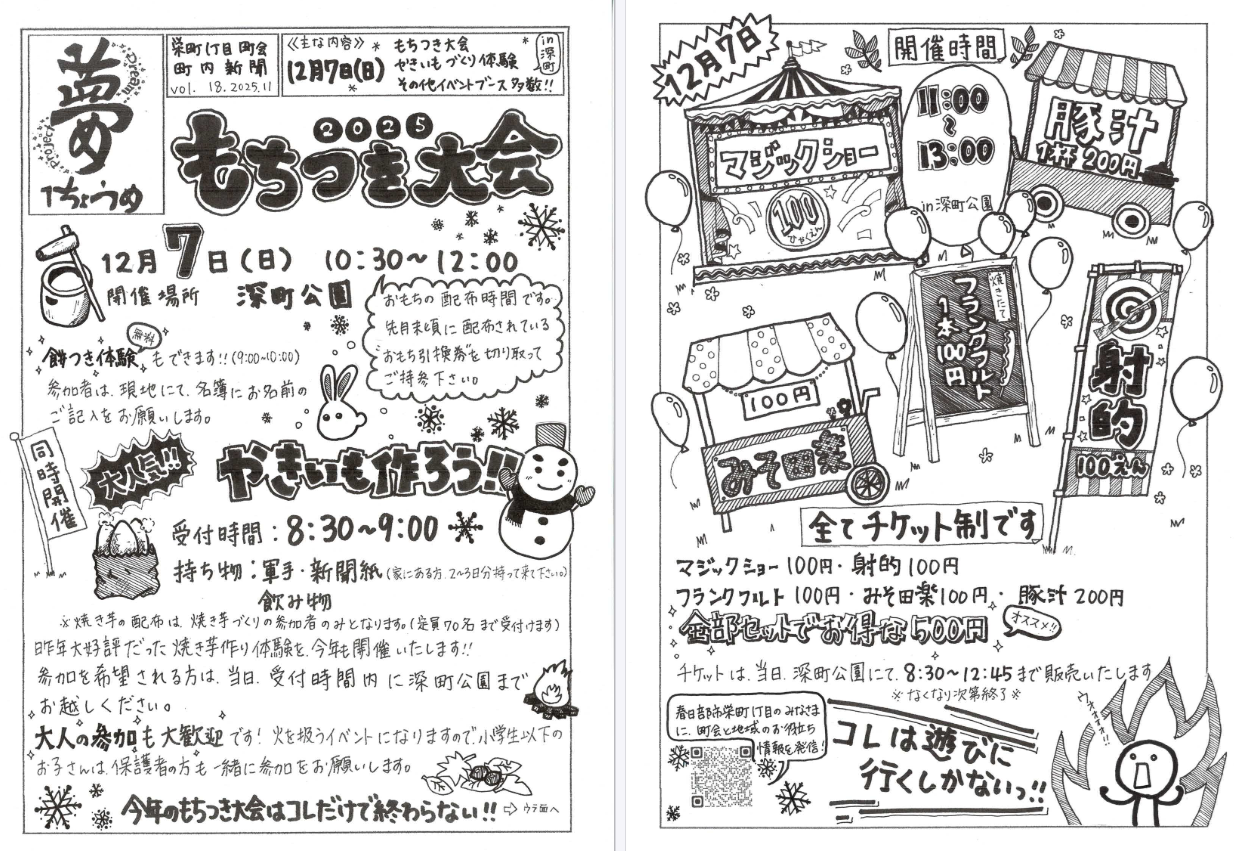 夢
め
1ちょうめ
Dream
Project
栄町1丁目町会
町内新聞
vol. 18. 2025.11
《主な内容》
12月7日(日)
もちつき大会
やきいもづくり体験
その他イベントブース多数!!
in深町
2025
もちつき大会
12月7日(日) 10:30~12:00
開催場所 深町公園
おもちの配布時間です。
先月末頃に配布されている
"おもち引換券"を切り取って
ご持参下さい。
無料
餅つき体験もできます!!(9:00~10:00)
参加者は、現地にて、名簿にお名前の
ご記入をお願いします。
同時開催
大人気!!
やきいも作ろう!!
受付時間:8:30~9:00
持ち物:軍手・新聞紙(家にある方、2~3日分持って来て下さい。)
飲み物
※焼き芋の配布は、焼き芋づくりの参加者のみとなります。(定員70名まで受付けます)
昨年大好評だった焼き芋作り体験を、今年も開催いたします!!
参加を希望される方は、当日、受付時間内に深町公園まで
お越しください。
大人の参加も大歓迎です!火を扱うイベントになりますので、小学生以下の
お子さんは、保護者の方も一緒に参加をお願いします。
今年のもちつき大会はコレだけで終わらない!! ⇨ウラ面へ
12月7日
開催時間
11:00
~
13:00
in深町公園
マジックショー
100
ひゃくえん
豚汁
1杯200円
焼きたて
フランクフルト
1本100円
100円
みそ田楽
射的
100えん
全てチケット制です
マジックショー100円・射的100円
フランクフルト100円・みそ田楽100円・豚汁200円
全部セットでお得な500円
オススメ!!
チケットは、当日、深町公園にて、8:30~12:45まで販売いたします
※なくなり次第終了※
春日部市栄町1丁目のみなさま
に、町会と地域のお役立ち
情報を発信!
コレは遊びに
行くしかないっ!!
ウオォォォ!!